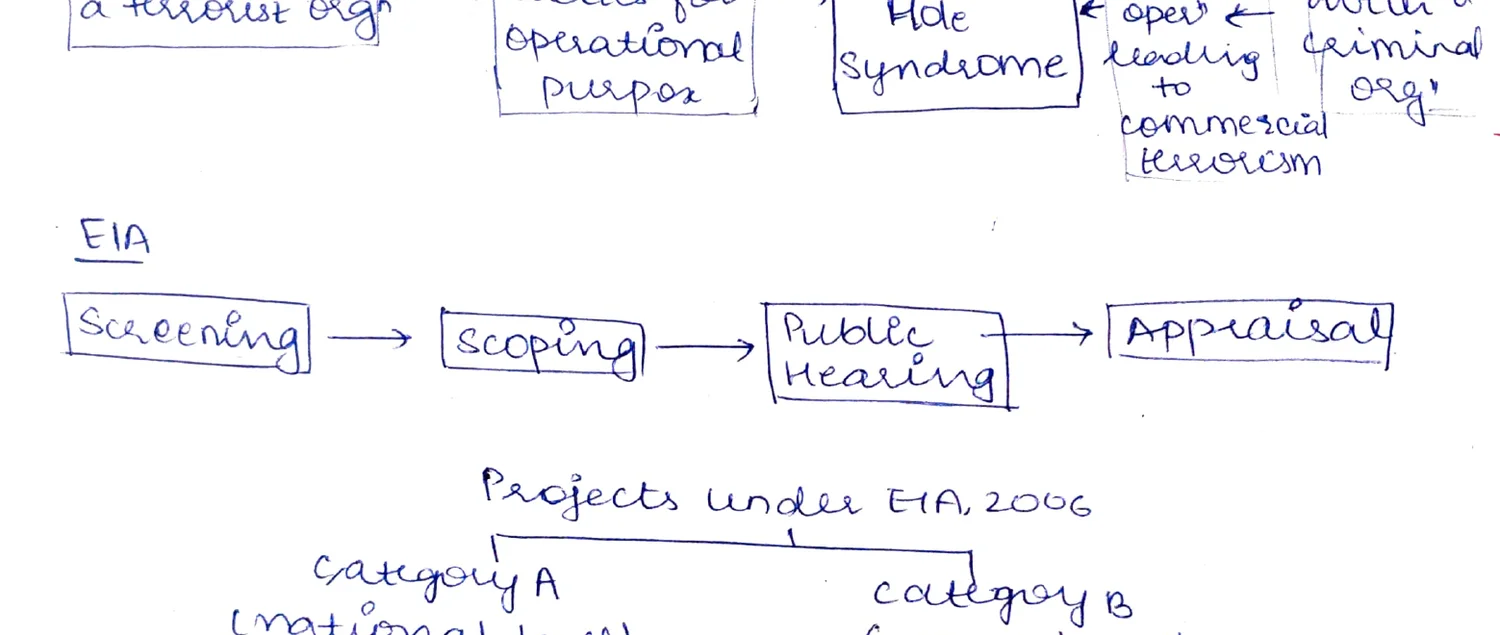 a terrorist orgn
operational
purpose
Hole
Syndrome
opern
leading
to
commercial
terrorism
criminal
orgn
EIA
Screening → Scoping → Public Hearing → Appraisal
Projects under EIA, 2006
Category A
Category B
(national